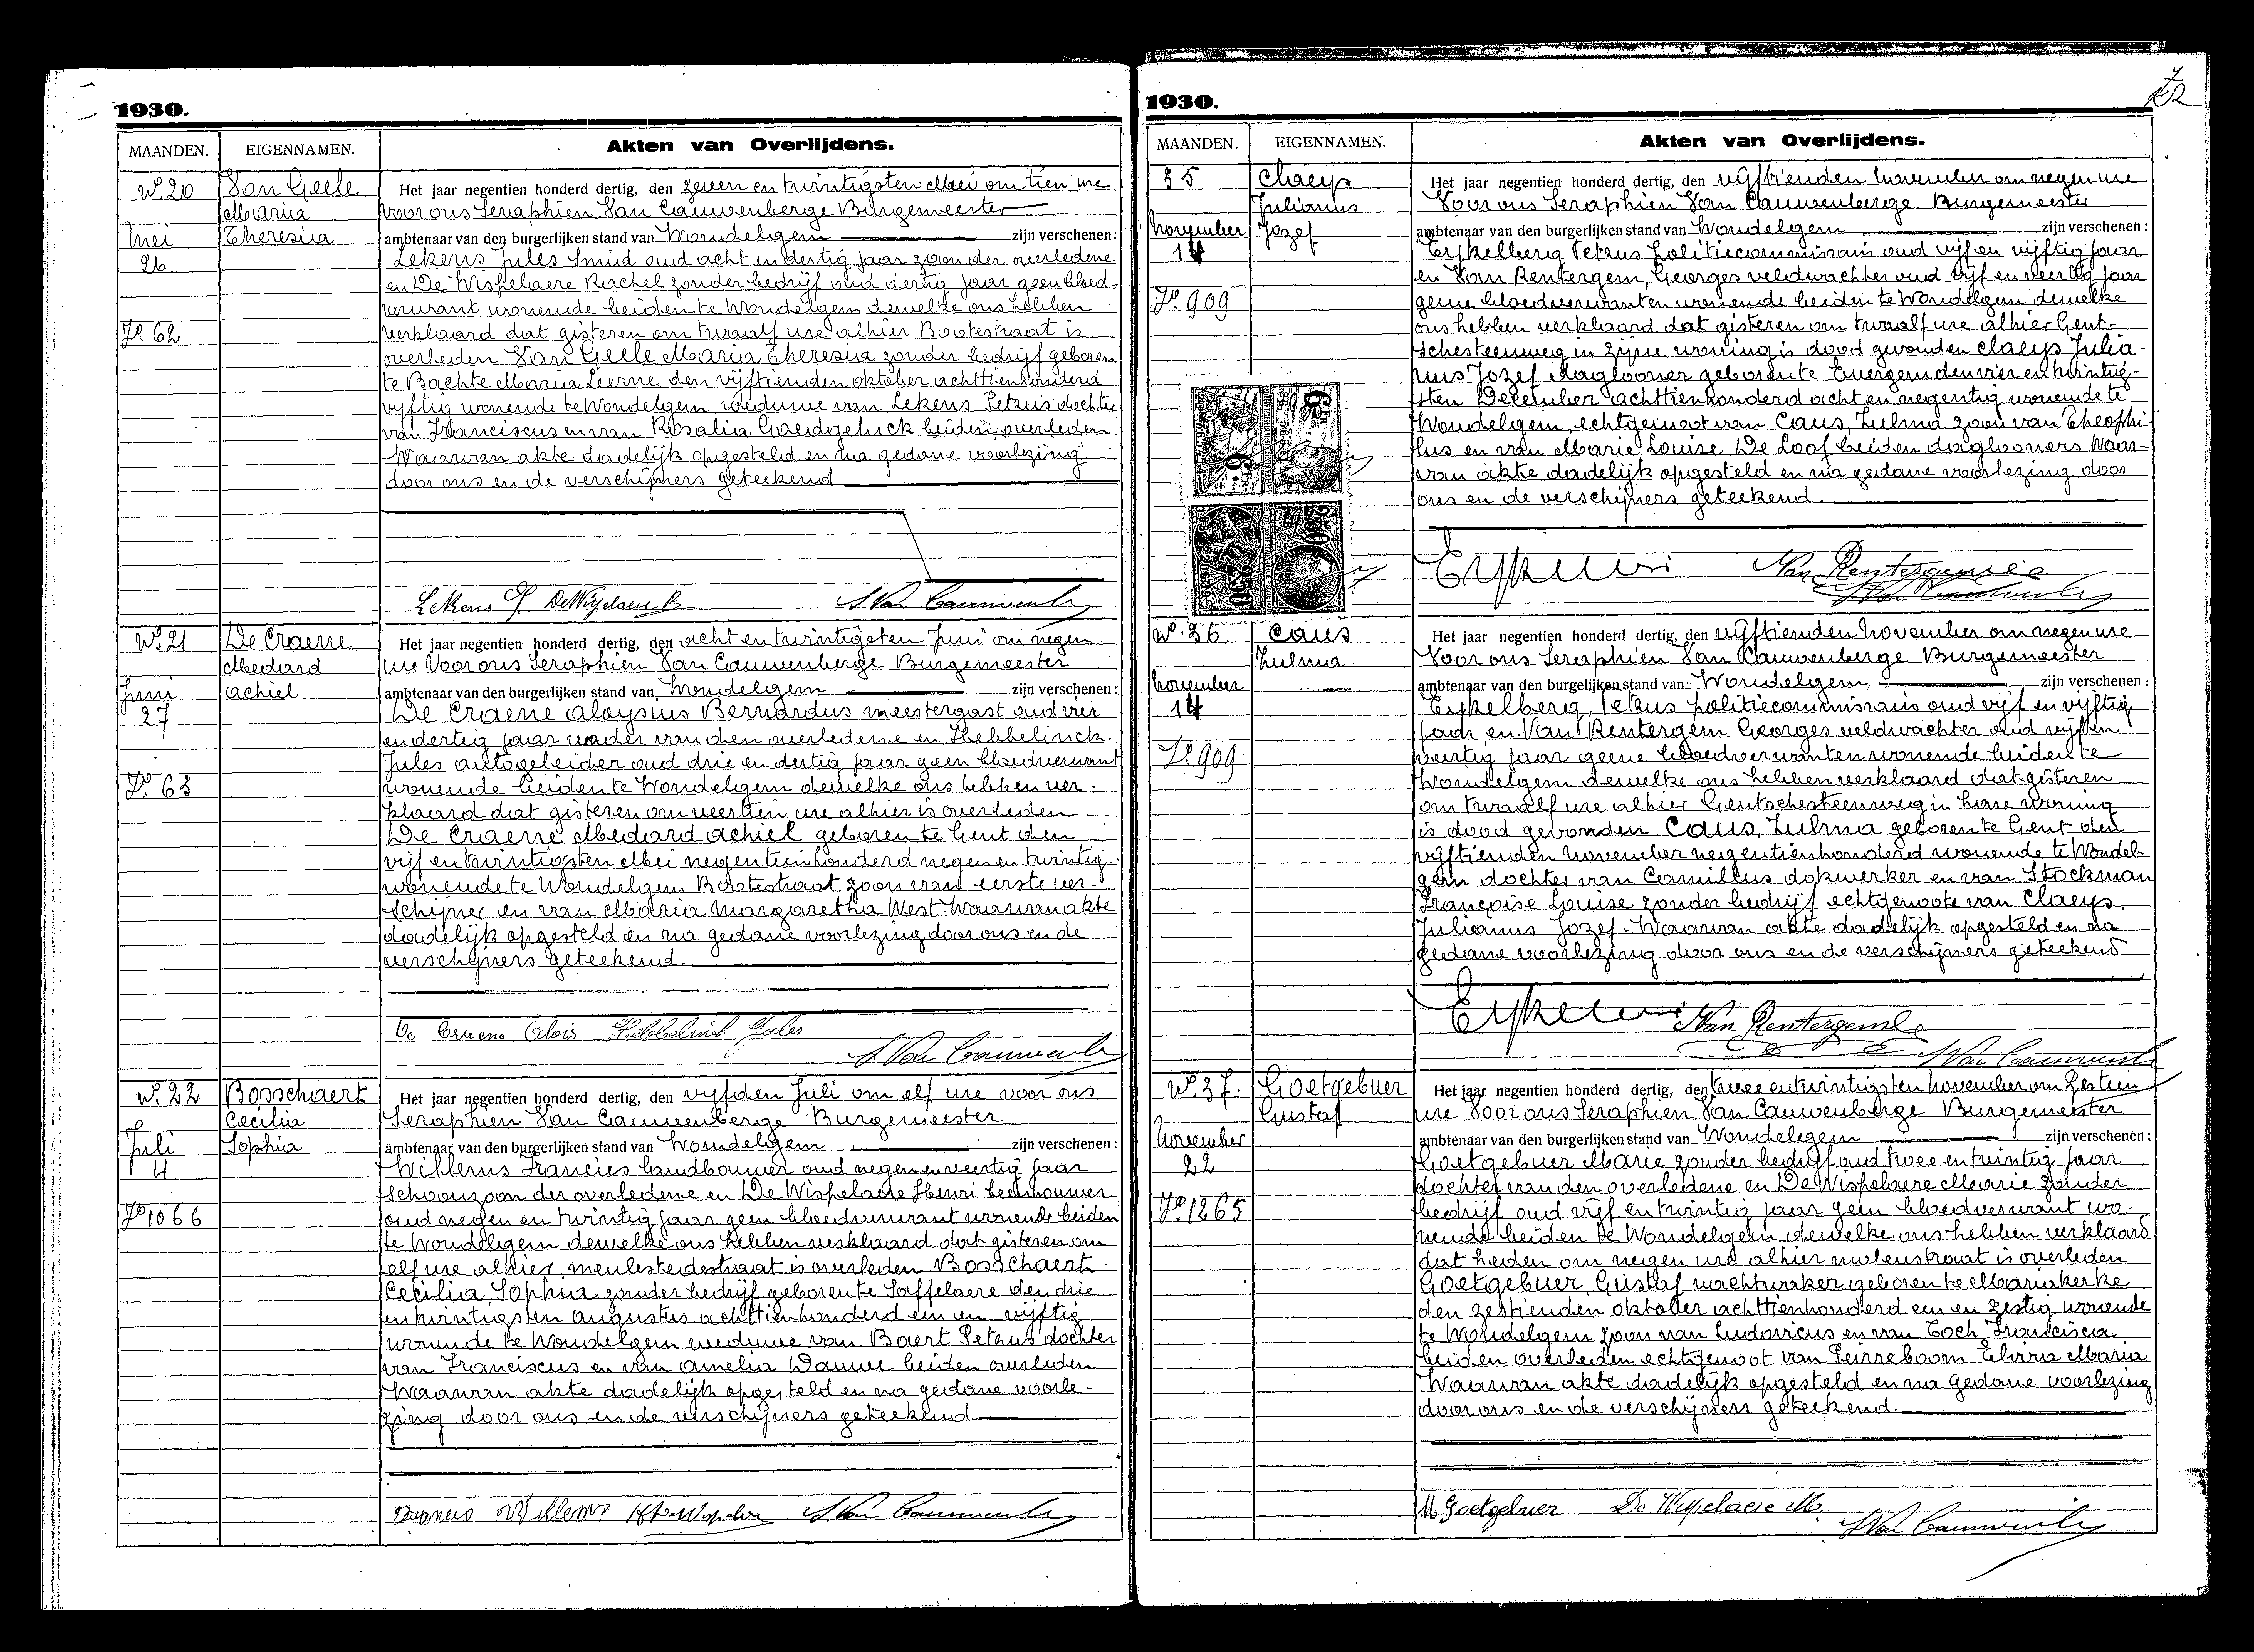 1930.
MAANDEN. EIGENNAMEN. Akten van Overlijdens.
N° 20
Mei
26
F° 62
Van Geele
Maria
Theresia
Het jaar negentien honderd dertig, den zeven en twintigsten Mei om tien ure
voor ons Seraphien Van Cauwenberge Burgemeester
ambtenaar van den burgerlijken stand van Wondelgem zijn verschenen:
Lekens Jules smid oud acht en dertig jaar zoon der overledene
en De Wispelaere Rachel zonder bedrijf oud dertig jaar geen bloed-
verwant wonende beiden te Wondelgem dewelke ons hebben
verklaard dat gisteren om twaalf ure alhier Bootestraat is
overleden Van Geele Maria Theresia zonder bedrijf geboren
te Bachte Maria Leerne den vijftienden oktober achttienhonderd
vyftig wonende te Wondelgem weduwe van Lekens Petrus dochter
van Franciscus en van Rosalia Goedgeluck beiden overleden
Waarvan akte dadelijk opgesteld en na gedane voorlezing
door ons en de verschijners geteekend
Lekens J. De Wispelaere R. S. Van Cauwenberge
N° 21
Juni
27
F° 63
De Craene
Medard
Achiel
Het jaar negentien honderd dertig, den acht en twintigsten Juni om negen
ure Voor ons Seraphien Van Cauwenberge Burgemeester
ambtenaar van den burgerlijken stand van Wondelgem zijn verschenen:
De Craene Aloysius Bernardus meestergast oud vier
en dertig jaar vader van den overledene en Hebbelinck
Jules autogeleider oud drie en dertig jaar geen bloedverwant
wonende beiden te Wondelgem dewelke ons hebben ver-
klaard dat gisteren om veertien ure alhier is overleden
De Craene Medard Achiel geboren te Gent den
vijf en twintigsten Mei negentienhonderd negen en twintig
wonende te Wondelgem Bootestraat zoon van eerste ver-
schijner en van Maria Margaretha West. Waarvan akte
dadelijk opgesteld en na gedane voorlezing door ons en de
verschijners geteekend.
De Craene Alois Hebbelinck Jules
S. Van Cauwenberge
N° 22
Juli
4
F° 1066
Bosschaert
Cecilia
Sophia
Het jaar negentien honderd dertig, den vyfden Juli om elf ure voor ons
Seraphien Van Cauwenberge Burgemeester
ambtenaar van den burgerlijken stand van Wondelgem zijn verschenen:
Willems Francies landbouwer oud negen en veertig jaar
schoonzoon der overledene en De Wispelaere Henri beenhouwer
oud negen en twintig jaar geen bloedverwant wonende beiden
te Wondelgem dewelke ons hebben verklaard dat gisteren om
elf ure alhier meulestedestraat is overleden Bosschaert
Cecilia, Sophia zonder bedrijf geboren te Saffelaere den drie
en twintigsten Augustus achttienhonderd een en vijftig
wonende te Wondelgem weduwe van Baert Petrus dochter
van Franciscus en van Amelia Dauwe beiden overleden
Waarvan akte dadelijk opgesteld en na gedane voorle-
zing door ons en de verschijners geteekend
Willems S. Van Cauwenberge
1930.
MAANDEN. EIGENNAMEN. Akten van Overlijdens.
35
November
14
F° 909
Claeys
Julianus
Jozef
Het jaar negentien honderd dertig, den vijftienden November om negen ure
Voor ons Seraphien Van Cauwenberge Burgemeester
ambtenaar van den burgerlijken stand van Wondelgem zijn verschenen:
Eyskelberg Petrus politiecommissaris oud vijf en vijftig jaar
en Van Rentergem, Georges veldwachter oud vijf en veertig jaar
geene bloedverwanten wonende beiden te Wondelgem dewelke
ons hebben verklaard dat gisteren om twaalf ure alhier Gent-
schesteenweg in zijne woning is dood gevonden Claeys Julia-
nus Jozef daglooner geboren te Evergem den vier en twintig-
sten December achttienhonderd acht en negentig wonende te
Wondelgem, echtgenoot van Caus, Zulma zoon van Theophi-
lus en van Marie Louise De Loof beiden daglooners Waar-
van akte dadelijk opgesteld en na gedane voorlezing door
ons en de verschijners geteekend.
Van Rentergem
N° 36
November
14
F° 909
Caus
Zulma
Het jaar negentien honderd dertig, den vijftienden November om negen ure
Voor ons Seraphien Van Cauwenberge Burgemeester
ambtenaar van den burgelijken stand van Wondelgem zijn verschenen:
Eyskelberg, Petrus politiecommissaris oud vijf en vijftig
jaar en Van Rentergem Georges veldwachter oud vijf en
veertig jaar geene bloedverwanten wonende beiden te
Wondelgem dewelke ons hebben verklaard dat gisteren
om twaalf ure alhier Gentschesteenweg in hare woning
is dood gevonden Caus, Zulma geboren te Gent den
vijftienden November negentienhonderd wonende te Wondel-
gem dochter van Camillus dokwerker en van Stockman
Françoise Louise zonder bedrijf echtgenoote van Claeys,
Julianus Jozef. Waarvan akte dadelijk opgesteld en na
gedane voorlezing door ons en de verschijners geteekend
Van Rentergem
S. Van Cauwenberge
N° 37.
November
22
F° 1265
Goetgebuer
Gustaf
Het jaar negentien honderd dertig, den twee en twintigsten November om zestien
ure Voor ons Seraphien Van Cauwenberge Burgemeester
ambtenaar van den burgerlijken stand van Wondelgem zijn verschenen:
Goetgebuer Marie zonder bedrijf oud twee en twintig jaar
dochter van den overledene en De Wispelaere Marie zonder
bedrijf oud vijf en twintig jaar geen bloedverwant wo-
nende beiden te Wondelgem dewelke ons hebben verklaard
dat heden om negen ure alhier molenstraat is overleden
Goetgebuer, Gustaf nachtwaker geboren te Mariakerke
den zestienden oktober achttienhonderd een en zestig wonende
te Wondelgem zoon van Ludovicus en van Toch Francisca
beiden overleden echtgenoot van Peirreboom Elvira Maria
Waarvan akte dadelijk opgesteld en na gedane voorlezing
door ons en de verschijners geteekend.
M Goetgebuer De Wispelaere M.
S. Van Cauwenberge